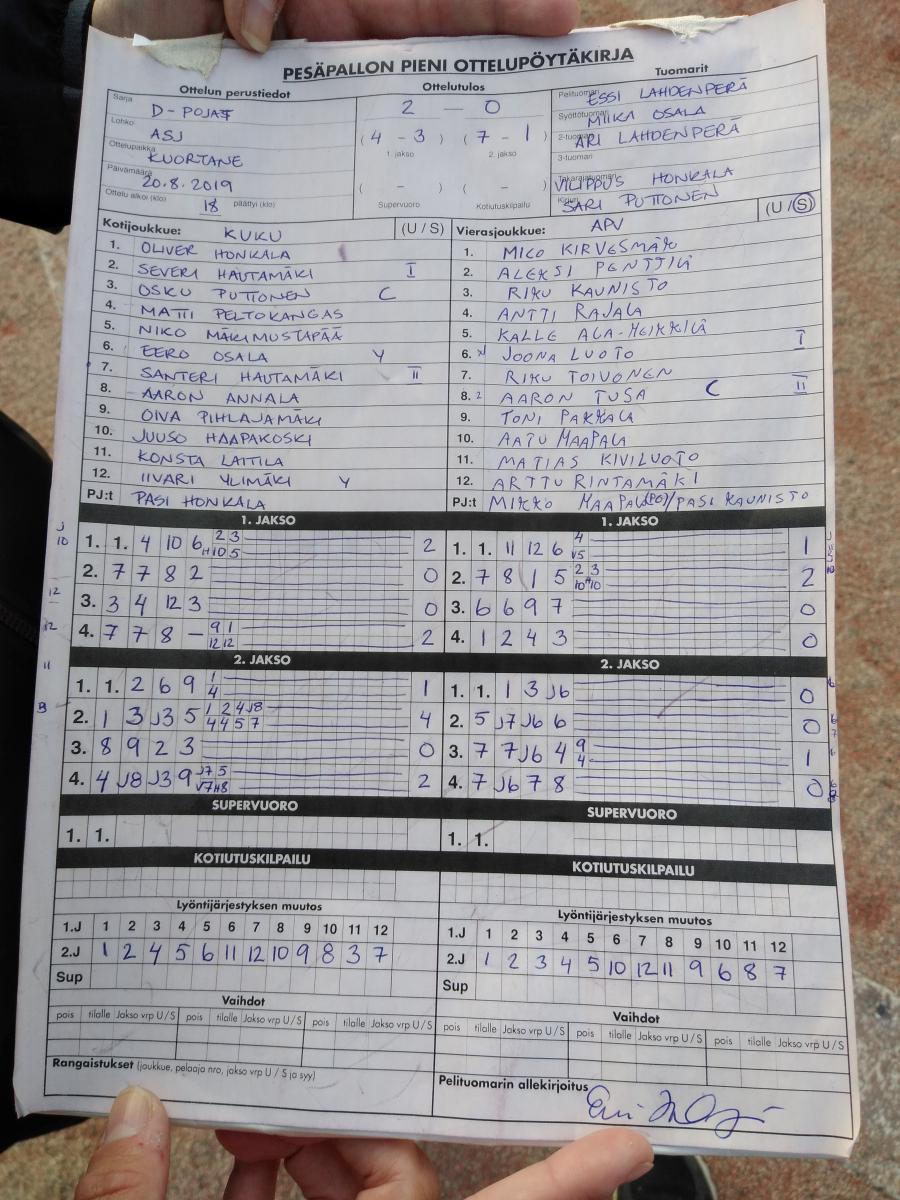 PESÄPALLON PIENI OTTELUPÖYTÄKIRJA
Ottelun perustiedot
Sarja D-POJAT
Lohko ASJ
Ottelupaikka KUORTANE
Päivämäärä 20.8.2019
Ottelu alkoi (klo) 18 päättyi (klo)
Ottelutulos
2 — 0
(4 - 3) (7 - 1)
1. jakso 2. jakso
( - ) ( - )
Supervuoro Kotiutuskilpailu
Tuomarit
Pelituomari ESSI LAHDENPERÄ
Syöttötuomari MIIKA OSALA
2-tuomari ARI LAHDENPERÄ
3-tuomari
Takarajatuomari VILIPPUS HONKALA
Kirjuri SARI PUTTONEN
Kotijoukkue: KUKU (U / S)
1. OLIVER HONKALA
2. SEVERI HAUTAMÄKI I
3. OSKU PUTTONEN C
4. MATTI PELTOKANGAS
5. NIKO MÄKIMUSTAPÄÄ
6. EERO OSALA Y
7. SANTERI HAUTAMÄKI II
8. AARON ANNALA
9. OIVA PIHLAJAMÄKI
10. JUUSO HAAPAKOSKI
11. KONSTA LAITILA
12. IIVARI YLIMÄKI Y
PJ:t PASI HONKALA
Vierasjoukkue: APV (U / S)
1. MICO KIRVESMÄKI
2. ALEKSI PENTTILÄ
3. RIKU KAUNISTO
4. ANTTI RAJALA
5. KALLE ALA-HEIKKILÄ I
6. JOONA LUOTO
7. RIKU TOIVONEN
8. AARON TUSA C II
9. TONI PAKKALA
10. AATU HAAPALA
11. MATIAS KIVILUOTO
12. ARTTU RINTAMÄKI
PJ:t MIKKO HAAPALA(PO)/PASI KAUNISTO
1. JAKSO
1. 1. 4 10 6 2 3 2
H10 5
2. 7 7 8 2 0
3. 3 4 12 3 0
4. 7 7 8 – 9 1 2
12 12
2. JAKSO
1. 1. 2 6 9 1 1
4
2. 1 3 J3 5 1 2 4 J8 4
4 4 5 7
3. 8 9 2 3 0
4. 4 J8 J3 9 J7 5 2
V7 H8
SUPERVUORO
1. 1.
KOTIUTUSKILPAILU
1. JAKSO
1. 1. 11 12 6 4 1
V5
2. 7 8 1 5 2 3 2
10 H10
3. 6 6 9 7 0
4. 1 2 4 3 0
2. JAKSO
1. 1. 1 3 J6 0
2. 5 J7 J6 6 0
3. 7 7 J6 4 9 1
4
4. 7 J6 7 8 0
SUPERVUORO
1. 1.
KOTIUTUSKILPAILU
Lyöntijärjestyksen muutos
1.J 1 2 3 4 5 6 7 8 9 10 11 12
2.J 1 2 4 5 6 11 12 10 9 8 3 7
Sup
Vaihdot
pois tilalle Jakso vrp U / S pois tilalle Jakso vrp U / S pois tilalle Jakso vrp U / S
Rangaistukset (joukkue, pelaaja nro, jakso vrp U / S ja syy)
Lyöntijärjestyksen muutos
1.J 1 2 3 4 5 6 7 8 9 10 11 12
2.J 1 2 3 4 5 10 12 11 9 6 8 7
Sup
Vaihdot
pois tilalle Jakso vrp U / S pois tilalle Jakso vrp U / S pois tilalle Jakso vrp U / S
Pelituomarin allekirjoitus